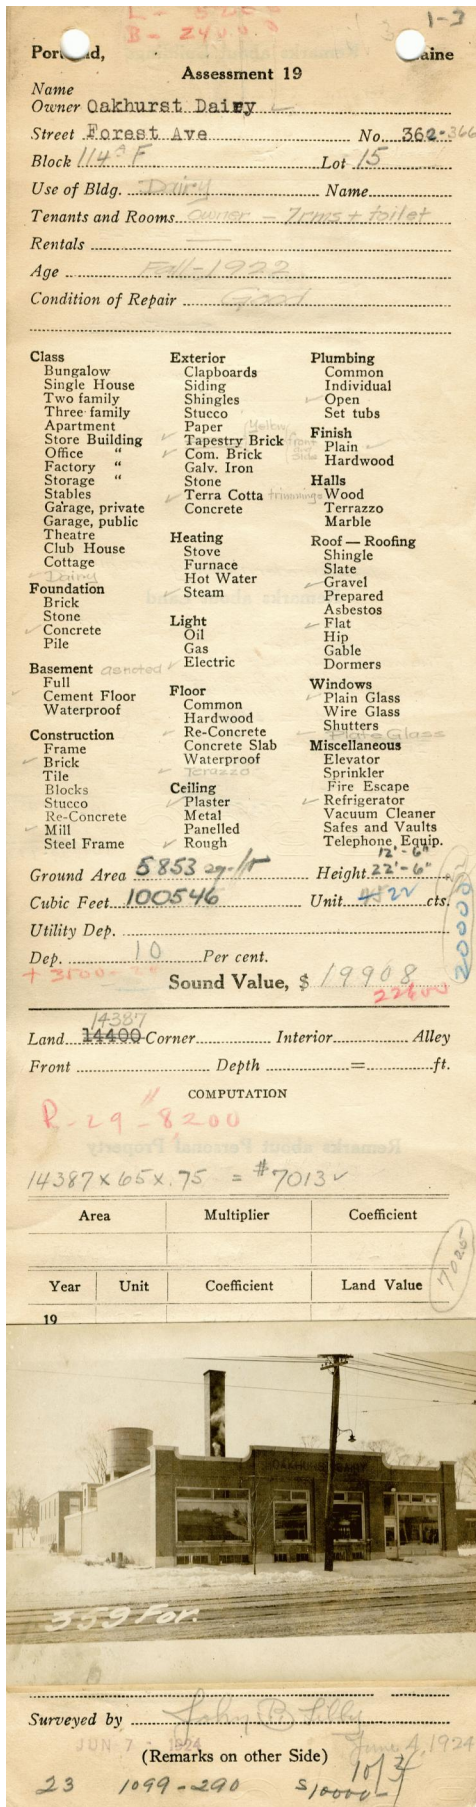 L - 8200
B - 2400.0
1-3
Portland, Maine
Assessment 19
Name
Owner Oakhurst Dairy
Street Forest Ave No. 362-366
Block 114A F Lot 15
Use of Bldg. Dairy Name
Tenants and Rooms owner - 7rms + toilet
Rentals —
Age Fall-1922
Condition of Repair Good
Class
Bungalow
Single House
Two family
Three family
Apartment
Store Building
Office "
Factory "
Storage "
Stables
Garage, private
Garage, public
Theatre
Club House
Cottage
Dairy
Foundation
Brick
Stone
Concrete
Pile
Basement as noted
Full
Cement Floor
Waterproof
Construction
Frame
Brick
Tile
Blocks
Stucco
Re-Concrete
Mill
Steel Frame
Exterior
Clapboards
Siding
Shingles
Stucco
Paper
Tapestry Brick Yellow front
Com. Brick and side
Galv. Iron
Stone
Terra Cotta trimmings
Concrete
Heating
Stove
Furnace
Hot Water
Steam
Light
Oil
Gas
Electric
Floor
Common
Hardwood
Re-Concrete
Concrete Slab
Waterproof
Terazzo
Ceiling
Plaster
Metal
Panelled
Rough
Plumbing
Common
Individual
Open
Set tubs
Finish
Plain
Hardwood
Halls
Wood
Terrazzo
Marble
Roof — Roofing
Shingle
Slate
Gravel
Prepared
Asbestos
Flat
Hip
Gable
Dormers
Windows
Plain Glass
Wire Glass
Shutters
Plate Glass
Miscellaneous
Elevator
Sprinkler
Fire Escape
Refrigerator
Vacuum Cleaner
Safes and Vaults
Telephone Equip.
12'-6"
Ground Area 5853 sq. ft Height 22'-6"
Cubic Feet 100546 Unit 22 cts.
20000
Utility Dep.
Dep. 10 Per cent.
+ 3500 -
Sound Value, $ 19908
22600
14387
Land 14400 Corner Interior Alley
Front Depth = ft.
COMPUTATION
R-29-8200
14387 x 65 x .75 = $7013
Area Multiplier Coefficient
7025
Year Unit Coefficient Land Value
19
OAKHURST DAIRY
359 For.
Surveyed by John B Lilly
JUN 7 - 1924
June 4, 1924
(Remarks on other Side)
23 1099-290 $10000-